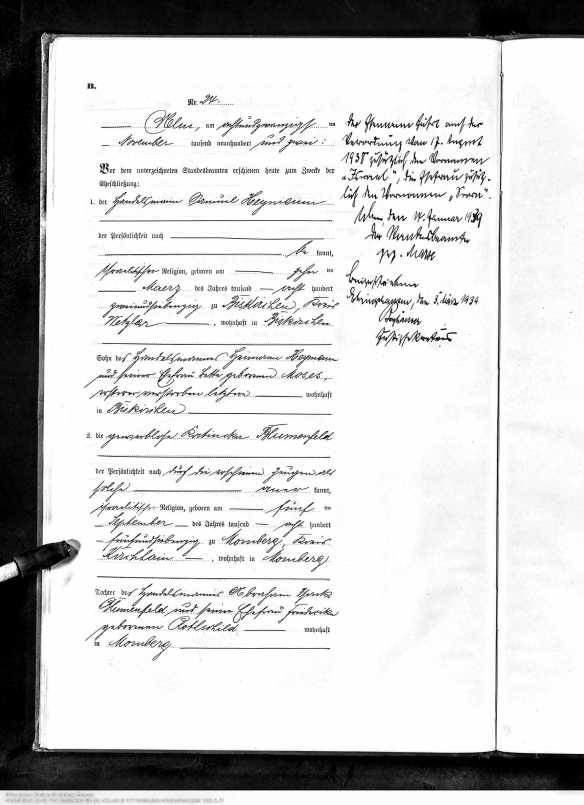 B.
Nr. 24.
Ulm, am achtundzwanzigsten
November tausend neunhundert und zwei:
Vor dem unterzeichneten Standesbeamten erschienen heute zum Zwecke der
Eheschließung:
1. der Handelsmann Samuel Heymann
der Persönlichkeit nach
be kannt,
israelitischer Religion, geboren am zehn ten
Maerz des Jahres tausend acht hundert
zweiundsiebenzig zu Biskirchen, Kreis
Wetzlar, wohnhaft in Biskirchen
Sohn des Handelsmannes Hermann Heymann
und seiner Ehefrau Bette geborenen Moses,
ersterer verstorben letztere wohnhaft
in Biskirchen
2. die gewerblose Katinka Blumenfeld
der Persönlichkeit nach durch die erschienenen Zeugen als
solche aner kannt,
israelitischer Religion, geboren am fünf ten
September des Jahres tausend acht hundert
fünfundsiebenzig zu Momberg, Kreis
Kirchhain, wohnhaft in Momberg
Tochter des Handelsmannes Abraham
Blumenfeld und seiner Ehefrau Friederike
geborenen Rothschild wohnhaft
in Momberg
Der Ehemann führt nach der
Verordnung vom 17. August
1938 zusätzlich den Vornamen
"Israel", die Ehefrau zusätz-
lich den Vornamen "Sara".
den 14. Januar 1939
Der Standesbeamte
gez.
den 5. 1939
Justizsekretär